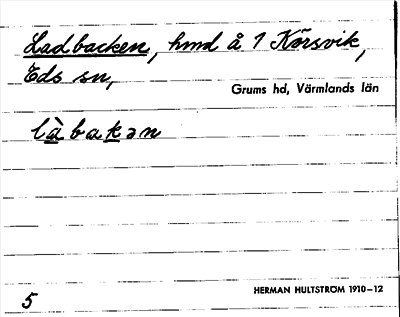 Ladbacken, hmd å 1 Körsvik,
Eds sn,
Grums hd, Värmlands län
làbakən
HERMAN HULTSTRÖM 1910–12
5